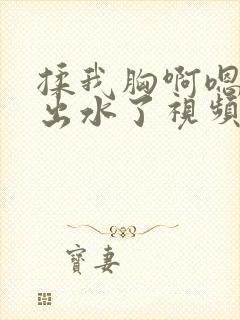 揉我胸啊嗯
出水了視頻
寶妻